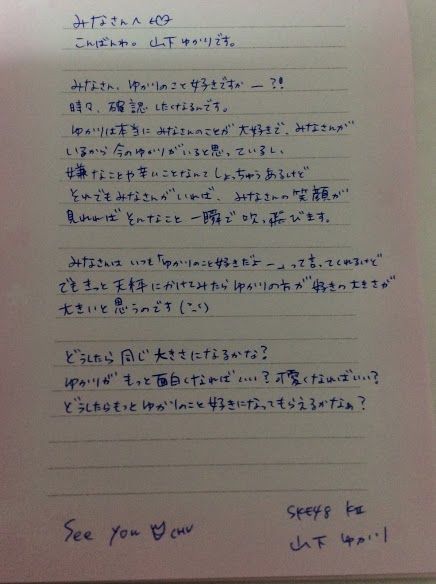 みなさんへ ♡
こんばんわ。山下ゆかりです。
みなさん、ゆかりのこと好きですかー?!
時々、確認したくなるんです。
ゆかりは本当にみなさんのことが大好きで、みなさんが
いるから今のゆかりがいると思っているし、
嫌なことや辛いことなんてしょっちゅうあるけど
それでもみなさんがいれば、みなさんの笑顔が
見れればそんなこと一瞬で吹っ飛びます。
みなさんはいつも「ゆかりのこと好きだよー」って言ってくれるけど
でもきっと天秤にかけてみたらゆかりの方が好きの大きさが
大きいと思うのです
どうしたら同じ大きさになるかな?
ゆかりがもっと面白くなればいい?可愛くなればいい?
どうしたらもっとゆかりのこと好きになってもらえるかなぁ?
See you CHU
SKE48 KⅡ
山下ゆかり